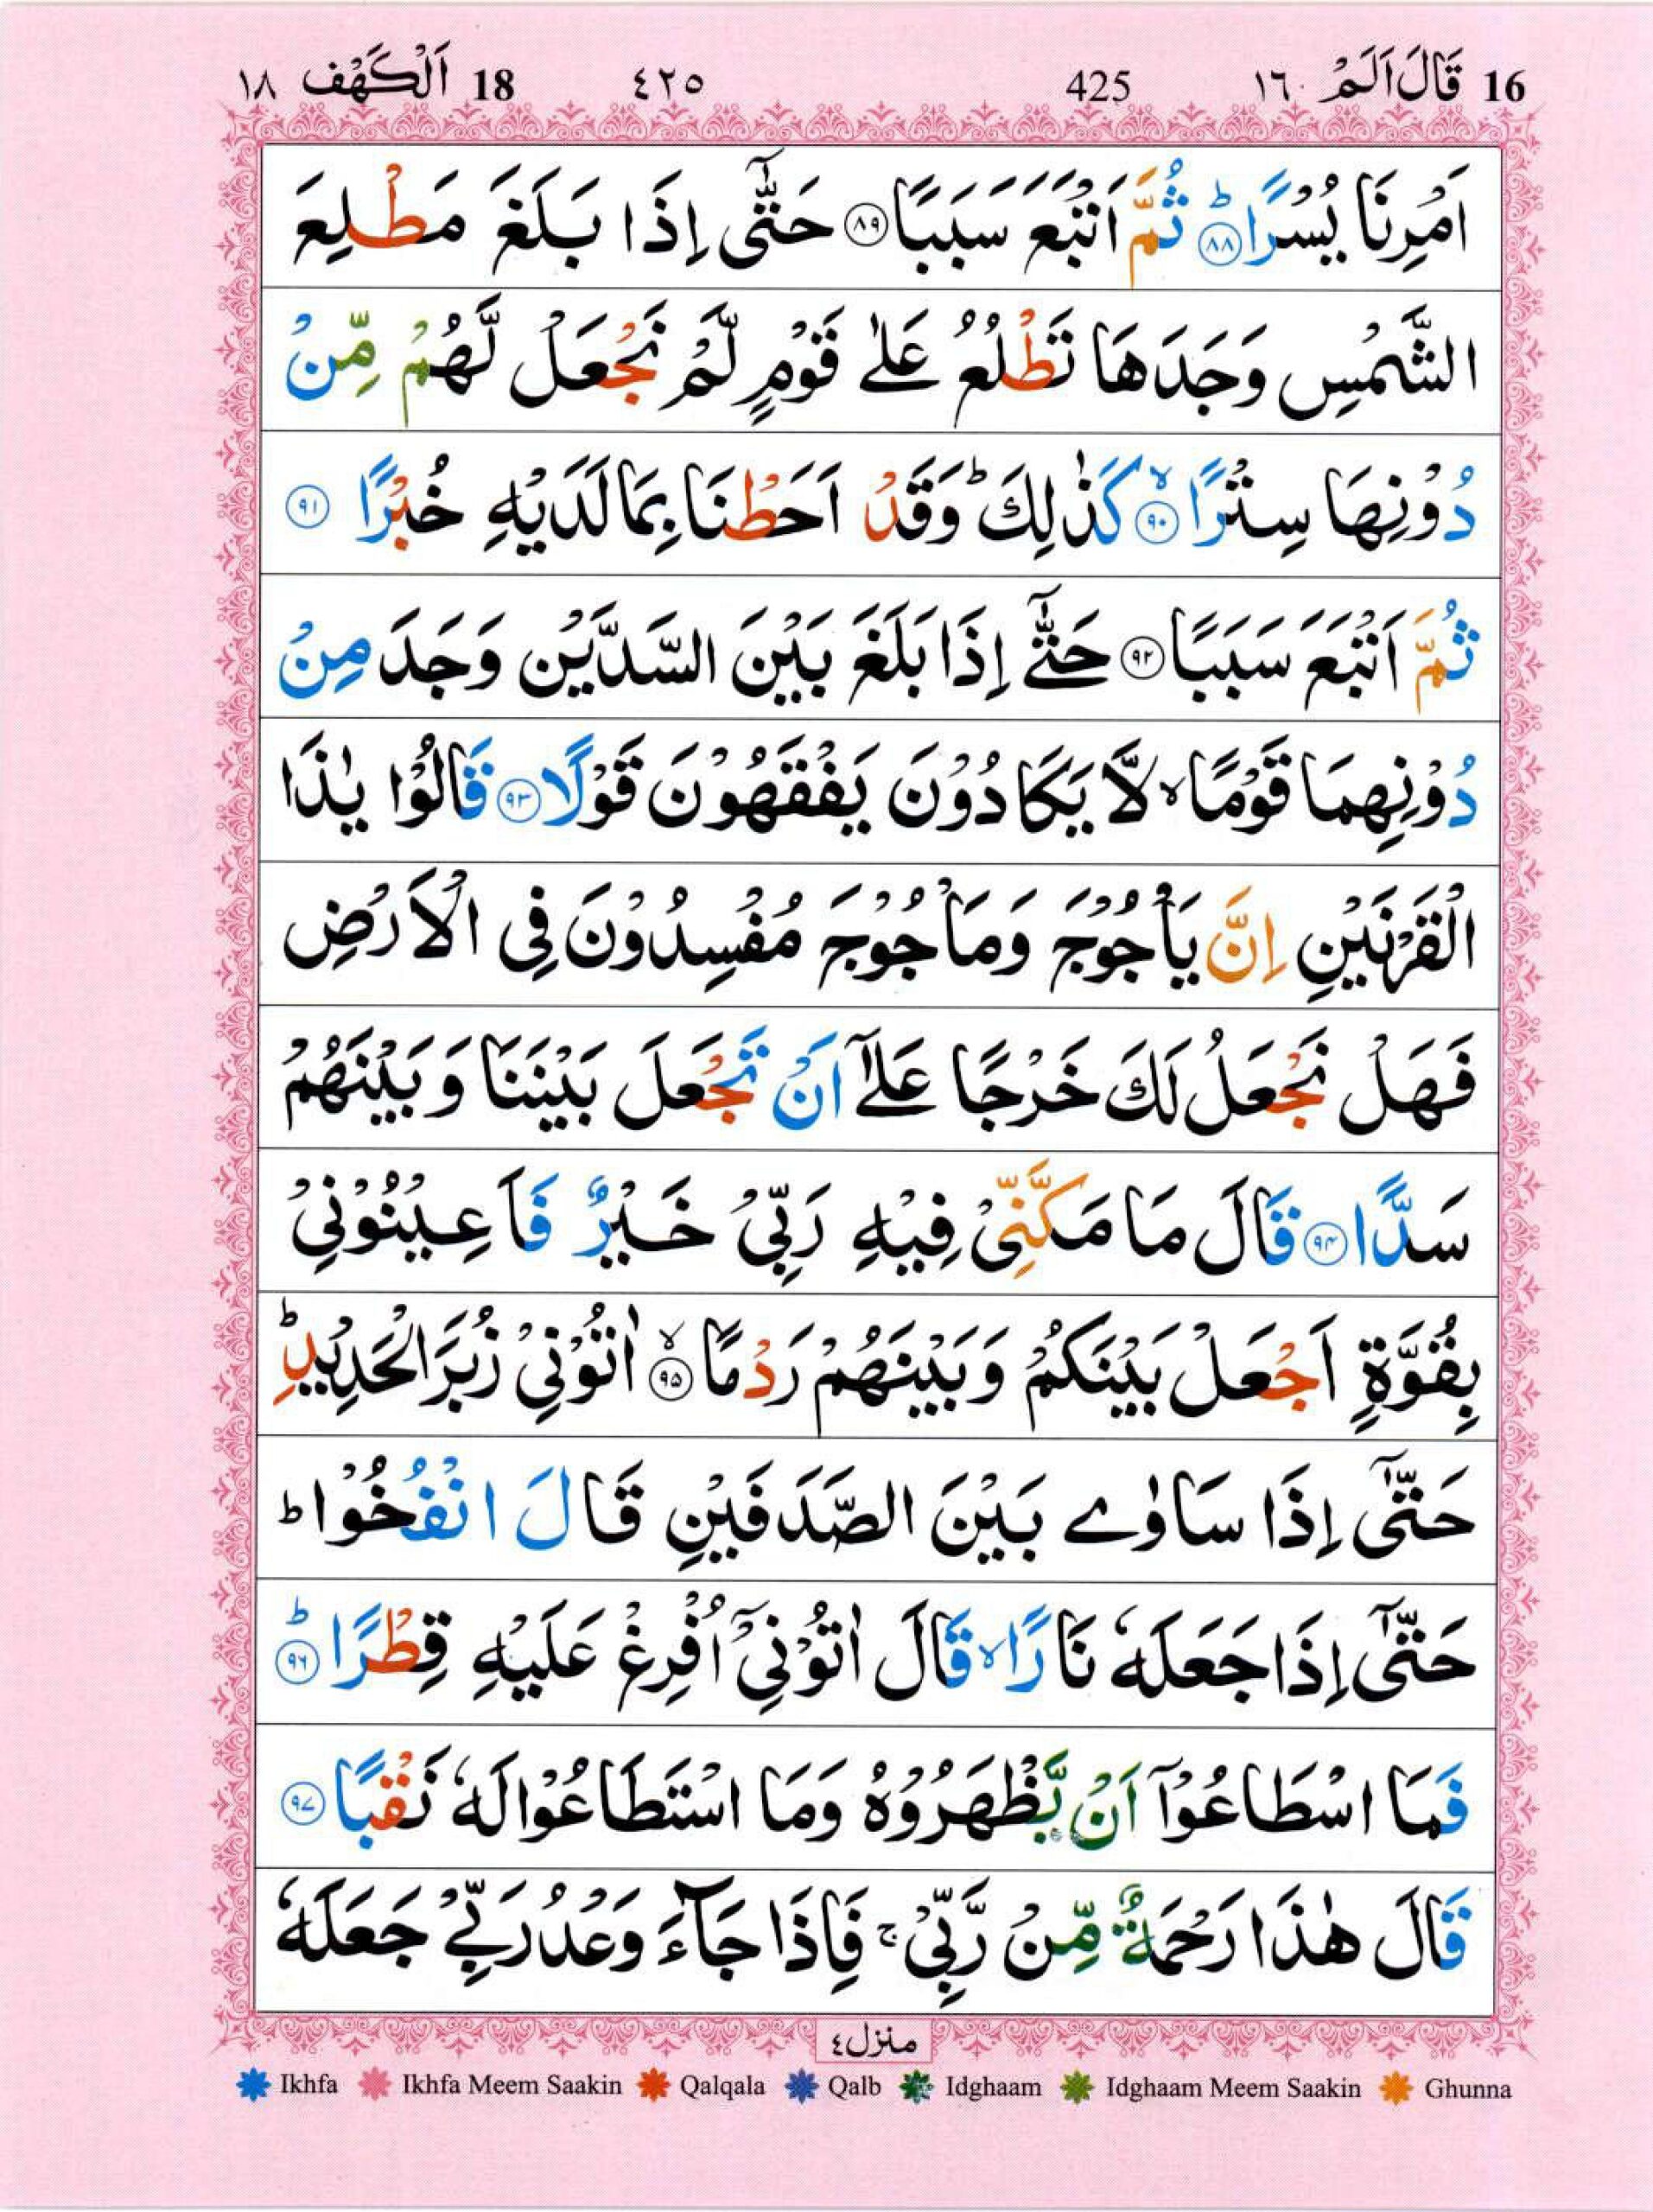 16 قَالَ اَلَمْ ١٦ 425 ٤٢٥ 18 اَلْكَهْف ١٨
اَمْرِنَا يُسْرًا ؕ ﴿۸۸﴾ ثُمَّ اَتْبَعَ سَبَبًا ﴿۸۹﴾ حَتّٰۤى اِذَا بَلَغَ مَطْلِعَ
الشَّمْسِ وَجَدَهَا تَطْلُعُ عَلٰى قَوْمٍ لَّمْ نَجْعَلْ لَّهُمْ مِّنْ
دُوْنِهَا سِتْرًا ۙ ﴿۹۰﴾ كَذٰلِكَ ؕ وَقَدْ اَحَطْنَا بِمَا لَدَيْهِ خُبْرًا ﴿۹۱﴾
ثُمَّ اَتْبَعَ سَبَبًا ﴿۹۲﴾ حَتّٰۤى اِذَا بَلَغَ بَيْنَ السَّدَّيْنِ وَجَدَ مِنْ
دُوْنِهِمَا قَوْمًا ۙ لَّا يَكَادُوْنَ يَفْقَهُوْنَ قَوْلًا ﴿۹۳﴾ قَالُوْا يٰذَا
الْقَرْنَيْنِ اِنَّ يَاْجُوْجَ وَمَاْجُوْجَ مُفْسِدُوْنَ فِى الْاَرْضِ
فَهَلْ نَجْعَلُ لَكَ خَرْجًا عَلٰۤى اَنْ تَجْعَلَ بَيْنَنَا وَبَيْنَهُمْ
سَدًّا ﴿۹۴﴾ قَالَ مَا مَكَّنِّىْ فِيْهِ رَبِّىْ خَيْرٌ فَاَعِيْنُوْنِىْ
بِقُوَّةٍ اَجْعَلْ بَيْنَكُمْ وَبَيْنَهُمْ رَدْمًا ۙ ﴿۹۵﴾ اٰتُوْنِىْ زُبَرَ الْحَدِيْدِ ؕ
حَتّٰۤى اِذَا سَاوٰى بَيْنَ الصَّدَفَيْنِ قَالَ انْفُخُوْا ؕ
حَتّٰۤى اِذَا جَعَلَهٗ نَارًا ۙ قَالَ اٰتُوْنِىْۤ اُفْرِغْ عَلَيْهِ قِطْرًا ؕ ﴿۹۶﴾
فَمَا اسْطَاعُوْۤا اَنْ يَّظْهَرُوْهُ وَمَا اسْتَطَاعُوْا لَهٗ نَقْبًا ﴿۹۷﴾
قَالَ هٰذَا رَحْمَةٌ مِّنْ رَّبِّىْ ۚ فَاِذَا جَآءَ وَعْدُ رَبِّىْ جَعَلَهٗ
منزل٤
Ikhfa Ikhfa Meem Saakin Qalqala Qalb Idghaam Idghaam Meem Saakin Ghunna